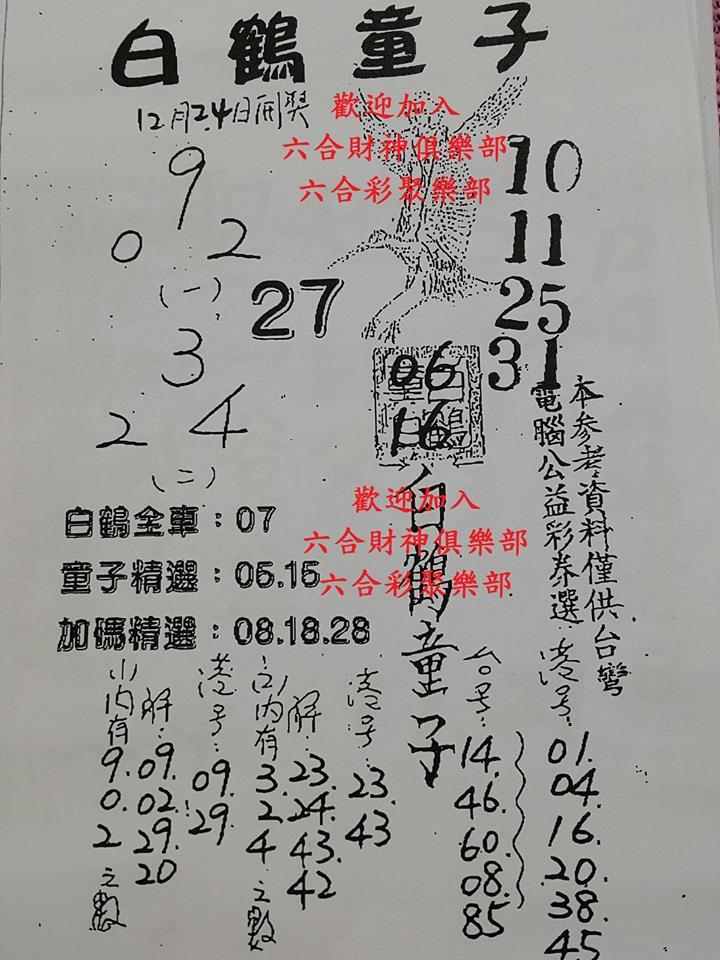 白鶴童子
12月24日開獎
歡迎加入
六合財神俱樂部
六合彩聚樂部
9
0 2
(一)
27
3
2 4
(二)
10
11
25
31
06
16
童白
子鶴
本參考資料僅供台灣
電腦公益彩券選
白鶴童子
歡迎加入
六合財神俱樂部
六合彩聚樂部
白鶴全車:07
童子精選:05.15
加碼精選:08.18.28
(一)內有
9.
0.
2
之數
解:
09.
02.
29.
20
港号:
09.
29.
(二)內有
3.
2
4
之數
解:
23.
24.
43.
42
港号:
23.
43
台号:
14.
46.
60.
08.
85
港号:
01.
04.
16.
20.
38.
45